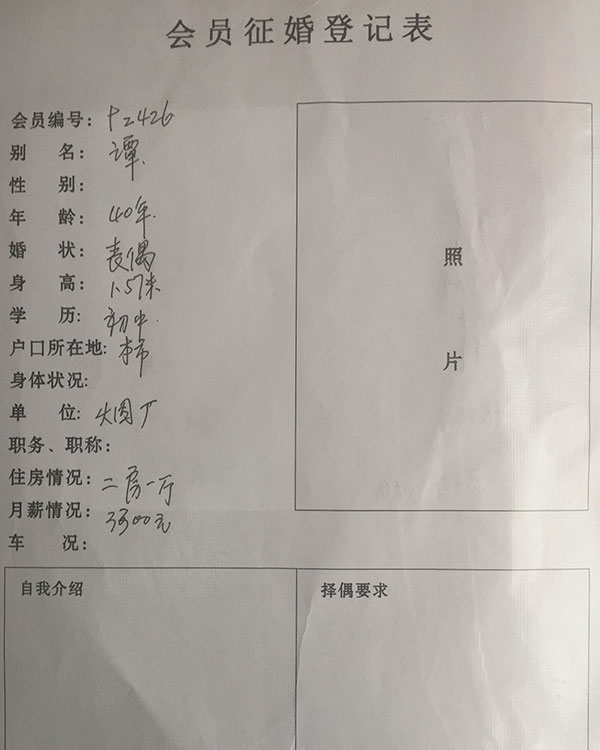 会员征婚登记表
会员编号：P2426
别名：谭
性别：
年龄：40年
婚状：丧偶
身高：1.57米
学历：初中
户口所在地：本市
身体状况:
单位:
职务、职称：
住房情况：二房一厅
月薪情况：3500元
车况：
照片
自我介绍
择偶要求